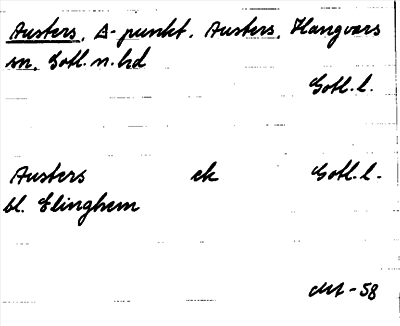 Austers, Δ-punkt. Austers, Hangvars
sn, Gotl. n. hd
Gotl. l.
Austers ek Gotl. l.
bl. Elinghem
Mt - 58